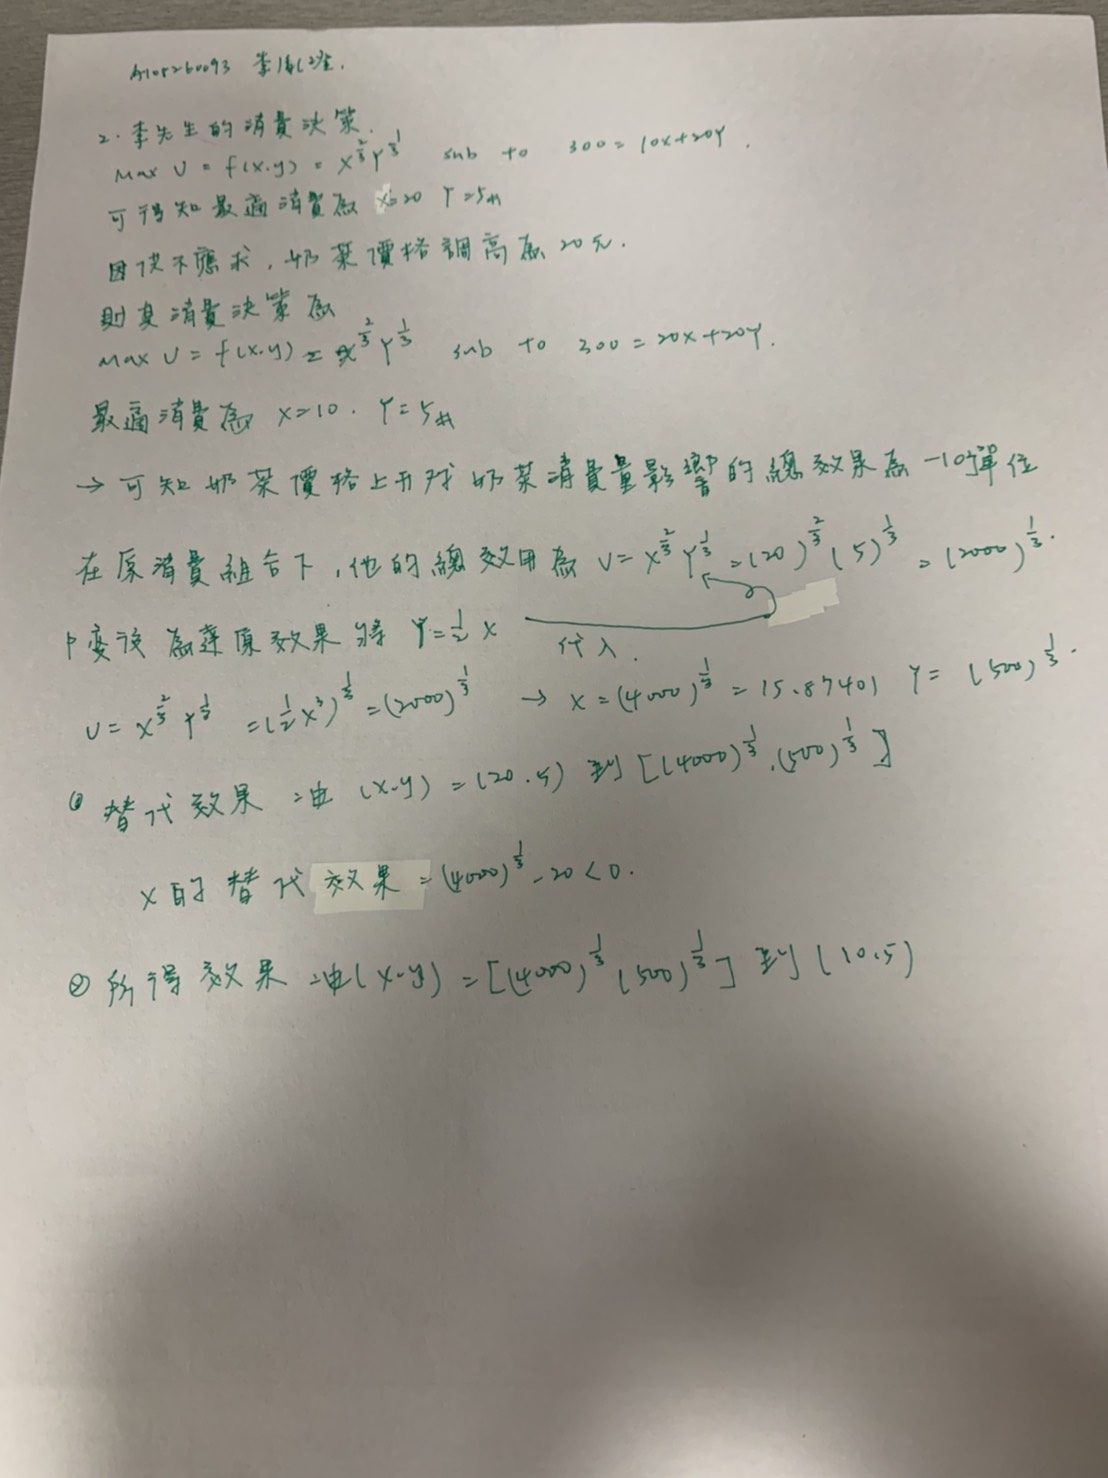 A105260093 李
2. 李先生的消費決策.
Max U = f(x.y) = x^{2/3} Y^{1/3} sub to 300 = 10x+20Y.
可得知最適消費為 x=20 Y=5#
因供不應求,奶茶價格調高為20元.
則其消費決策為
Max U = f(x.y) = x^{2/3} Y^{1/3} sub to 300 = 20x+20Y.
最適消費為 x=10. Y=5#
→ 可知奶茶價格上升對奶茶消費量影響的總效果為 -10單位
在原消費組合下,他的總效用為 U = x^{2/3} Y^{1/3} = (20)^{2/3} (5)^{1/3} = (2000)^{1/3}.
P變後為達原效果將 Y=\frac{1}{2} x 代入.
U = x^{2/3} Y^{1/3} = (\frac{1}{2} x^3)^{1/3} = (2000)^{1/3} → x = (4000)^{1/3} = 15.87401 Y = (500)^{1/3}.
① 替代效果 :由 (x.y) = (20.5) 到 [(4000)^{1/3}.(500)^{1/3}]
x的替代效果 = (4000)^{1/3} - 20 < 0.
② 所得效果 :由(x.y) = [(4000)^{1/3} (500)^{1/3}] 到 (10.5)